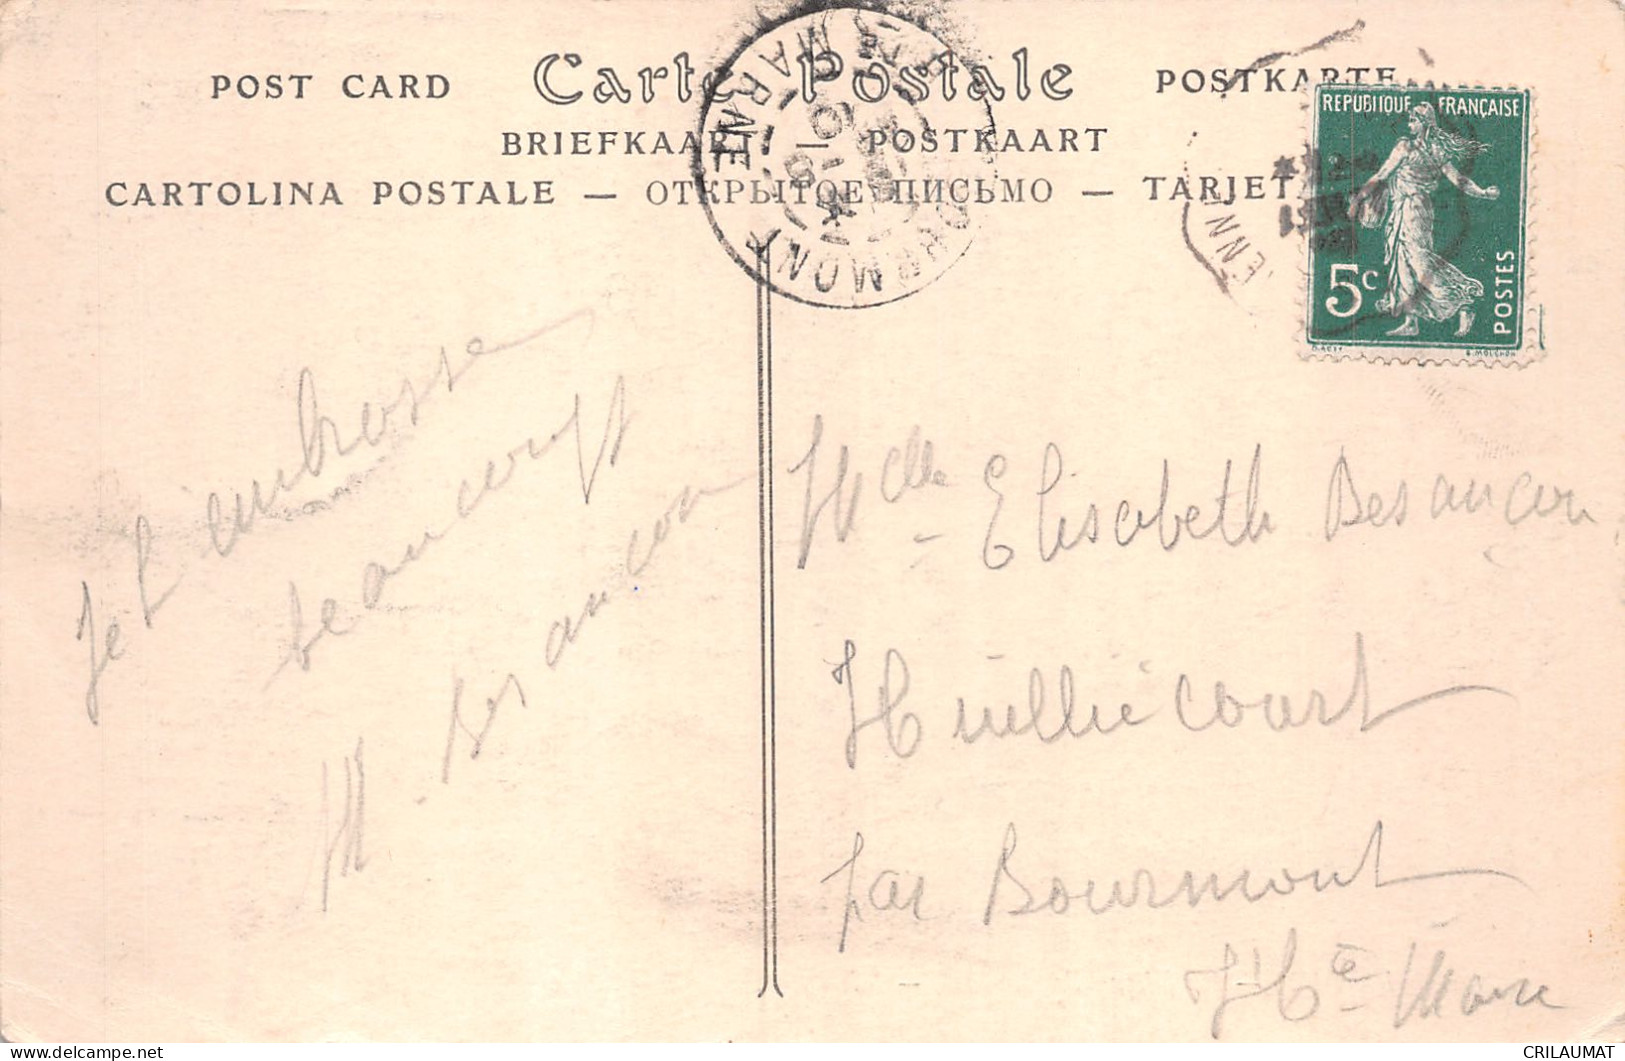 POST CARD Carte Postale POSTKARTE
BRIEFKAART — POSTKAART
CARTOLINA POSTALE — ОТКРЫТОЕ ПИСЬМО — TARJET
BOURMONT
HTE MARNE
ENN
REPUBLIQUE FRANÇAISE
5c
POSTES
O.ROTY
E.MOUCHON
Je t'embrasse
beaucoup
M. Besançon
Melle Elisabeth Besançon
Huilliécourt
par Bourmont
Hte Marne
CRILAUMAT